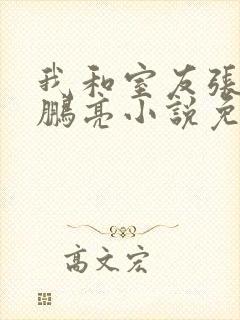 我和室友張
鵬亮小說免
高文宏